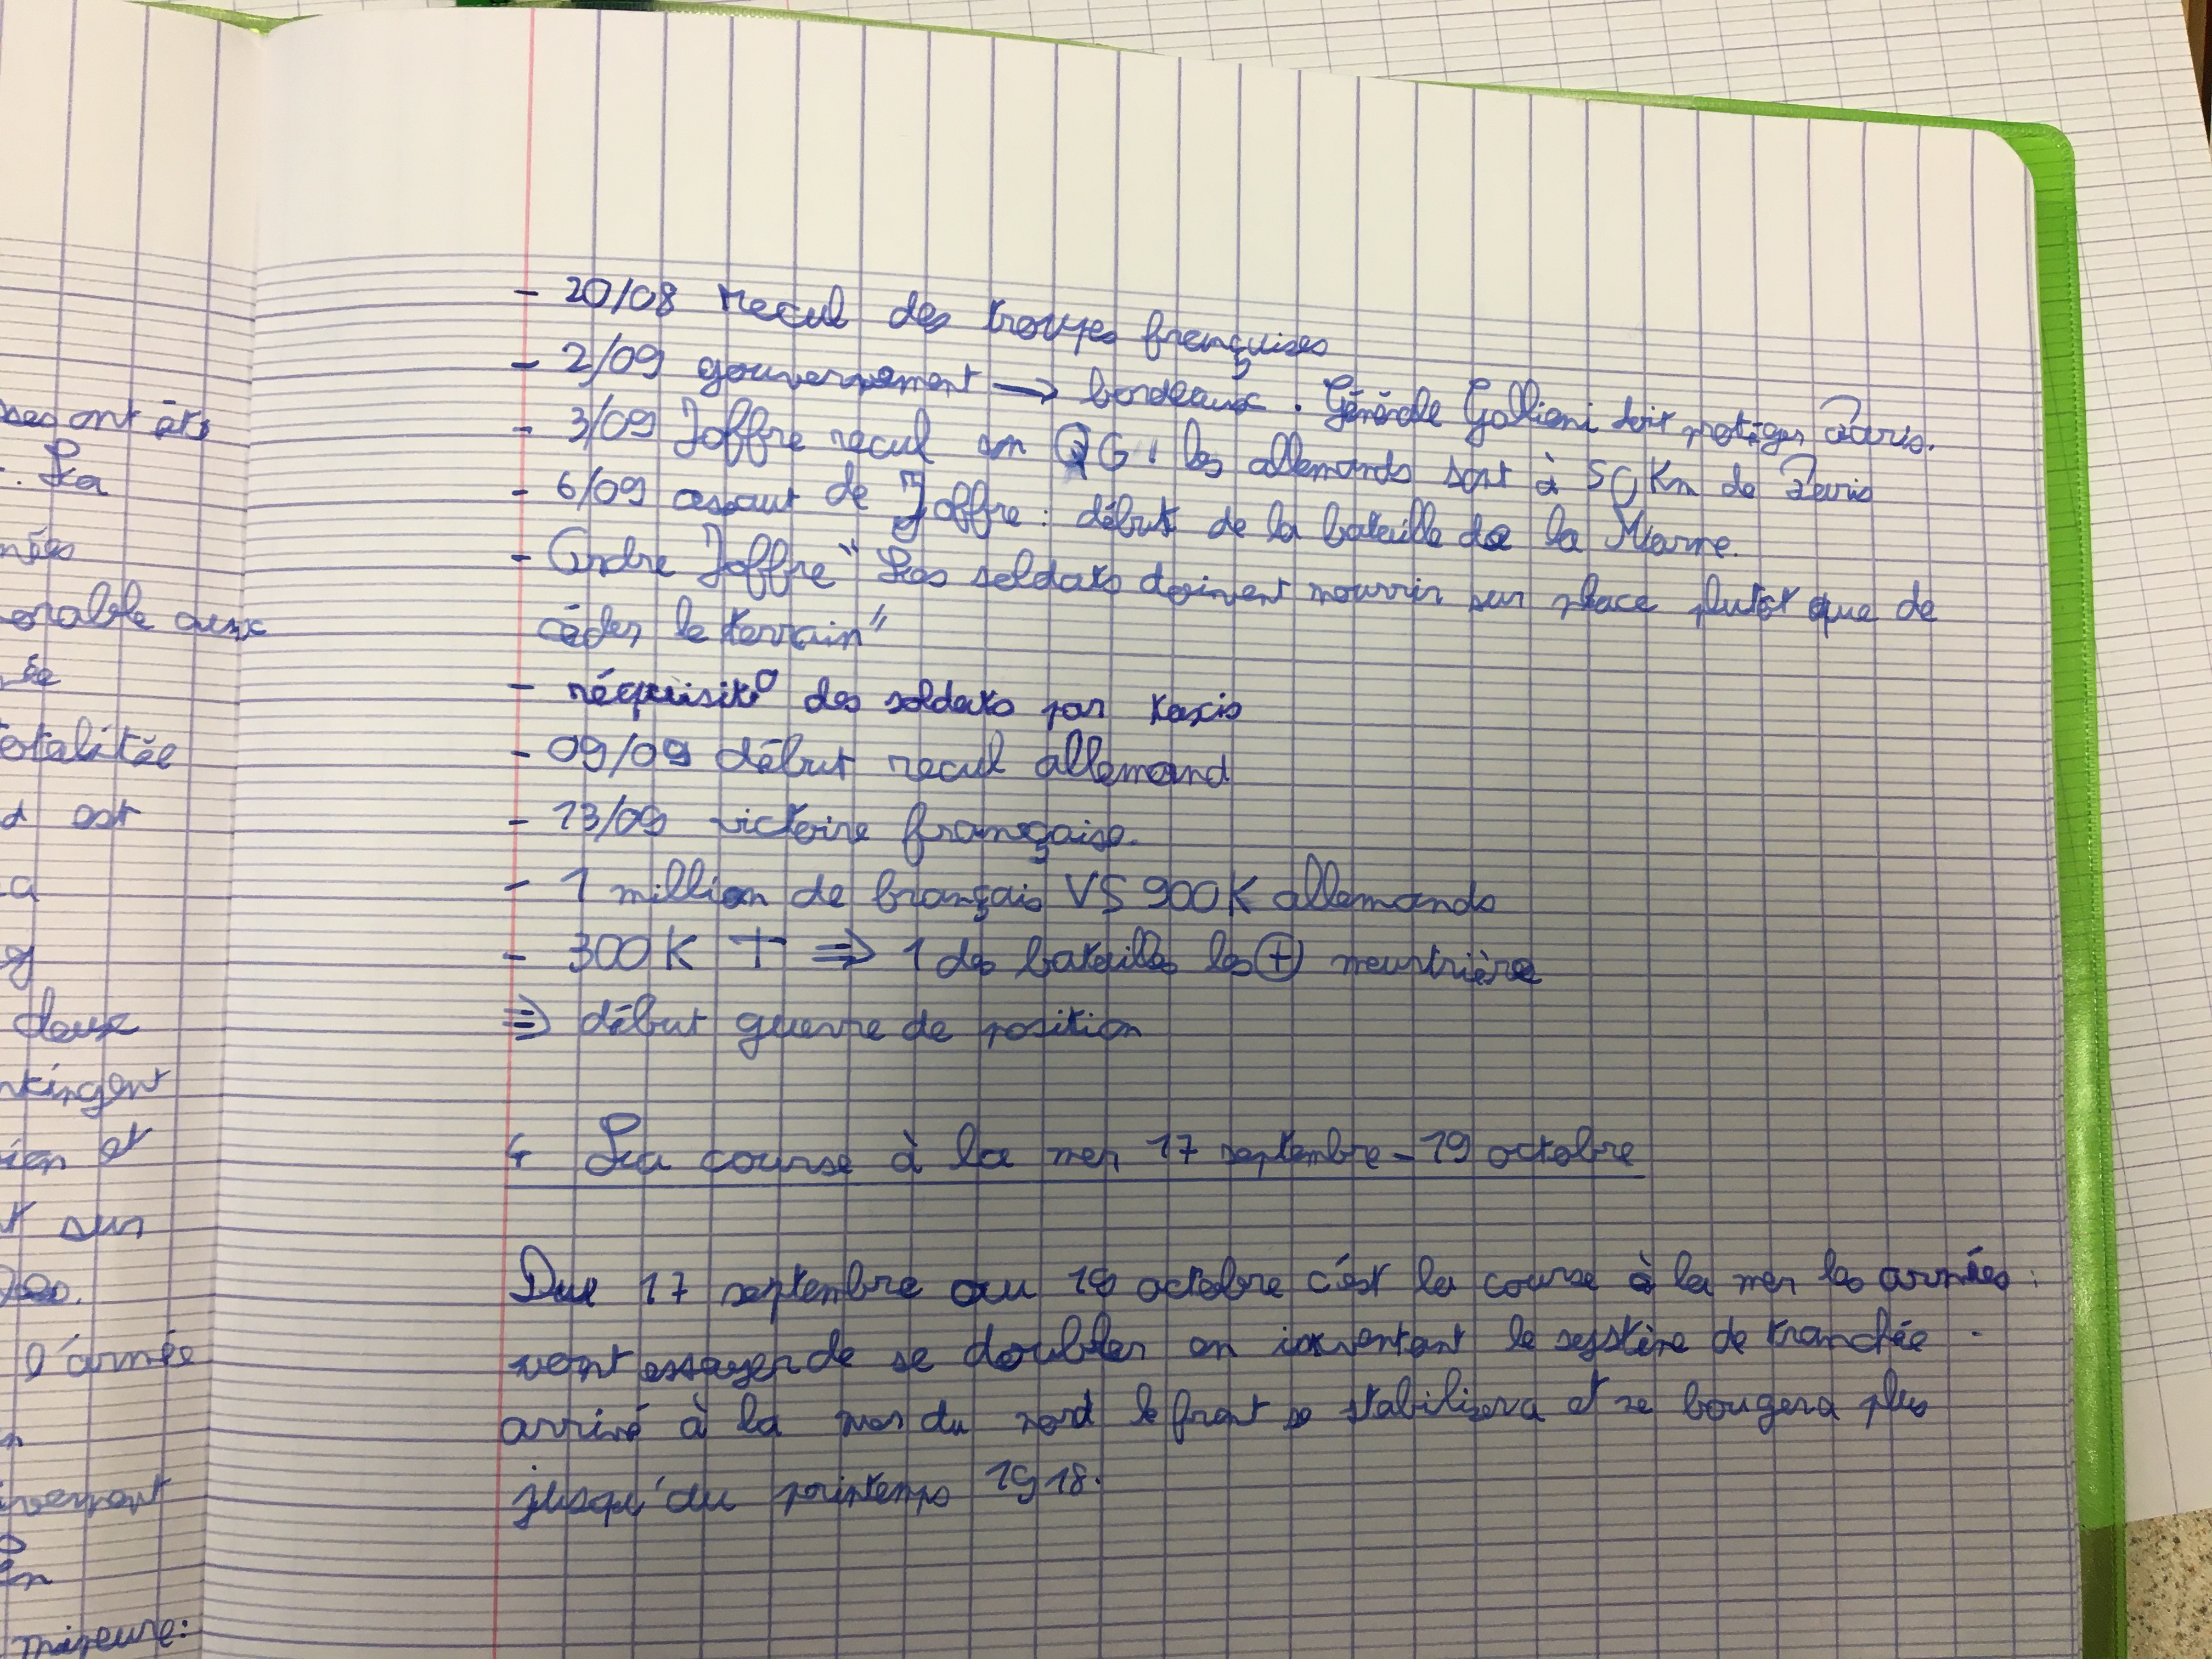 sses ont èts
. La
nées
orable aux
ée
otalitée
d est
a
g
deux
ntingent
ien et
t sur
l'armée
invement
en
majeure:
- 20/08 recul des troupes françaises
- 2/09 gouvernement → bordeaux. Générale Gallieni doit protéger Paris.
- 3/09 Joffre recul son QG : les allemands sont à 50 Km de Paris
- 6/09 assaut de Joffre : début de la bataille de la Marne.
- Ordre Joffre " Les soldats doivent mourrir sur place plutôt que de
céder le terrain"
- réquisit° des soldats par taxis
- 09/09 début recul allemand
- 13/09 victoire française.
- 1 million de français VS 900K allemands
- 300K † ⇒ 1 des batailles les ⊕ meurtrière
⇒ début guerre de position
4 La course à la mer 17 septembre - 19 octobre
Du 17 septembre au 19 octobre c'est la course à la mer les armées :
vont essayer de se doubler en inventant le système de tranchée.
arrivé à la mer du nord le front se stabilisera et ne bougera plus
jusqu'au printemps 1918.